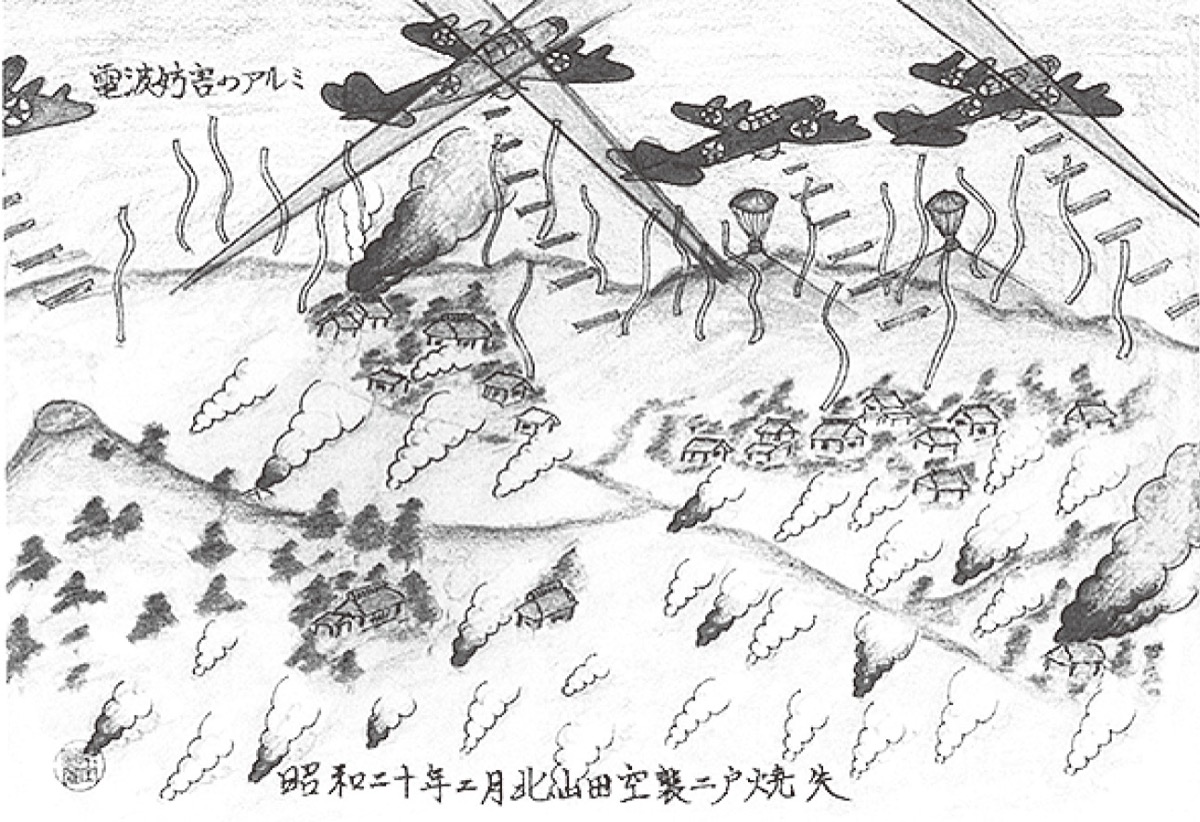 電波妨害のアルミ
昭和二十年二月北山田空襲二戸焼失